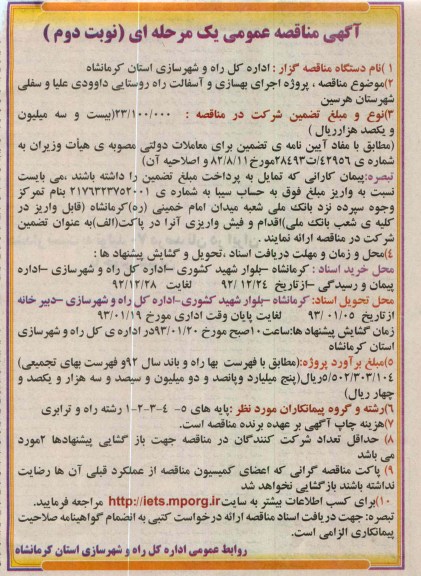 آگهی مناقصه عمومی یک مرحله ای (نوبت دوم )
۱ )نام دستگاه مناقصه گزار : اداره کل راه و شهرسازی استان کرمانشاه
۲)موضوع مناقصه ، پروژه اجرای بهسازی و آسفالت راه روستایی داوودی علیا و سفلی
شهرستان هرسین
۳)نوع و مبلغ تضمین شرکت در مناقصه : ۲۳/۱۰۰/۰۰۰(بیست و سه میلیون
و یکصد هزارریال )
(مطابق با مفاد آیین نامه ی تضمین برای معاملات دولتی مصوبه ی هیأت وزیران به
شماره ی ۴۲۹۵۶/ت۲۸۴۹۳مورخ۸۲/۸/۱۱ و اصلاحیه آن)
تبصره:پیمان کارانی که تمایل به پرداخت مبلغ تضمین را داشته باشند ،می بایست
نسبت به واریز مبلغ فوق به حساب سیبا به شماره ی ۲۱۷۶۲۲۳۷۵۲۰۰۱ بنام تمرکز
وجوه سپرده نزد بانک ملی شعبه میدان امام خمینی (ره)کرمانشاه (قابل واریز در
کلیه ی شعب بانک ملی)اقدام و فیش واریزی آنرا در پاکت(الف)به عنوان تضمین
شرکت در مناقصه ارائه نمایند .
۴)محل و زمان و مهلت دریافت اسناد ،تحویل و گشایش پیشنهاد ها :
محل خرید اسناد : کرمانشاه –بلوار شهید کشوری –اداره کل راه و شهرسازی –اداره
پیمان و رسیدگی –ازتاریخ ۹۲/ ۱۲/۲۴ لغایت ۹۲/۱۲/۲۸
محل تحویل اسناد: کرمانشاه –بلوار شهید کشوری–اداره کل راه و شهرسازی –دبیر خانه
ازتاریخ ۹۳/ ۰۱/۰۵ لغایت پایان وقت اداری مورخ ۹۳/۰۱/۱۹
زمان گشایش پیشنهاد ها:ساعت۱۰صبح مورخ ۹۳/۰۱/۲۰در اداره ی کل راه و شهرسازی
استان کرمانشاه
۵)مبلغ برآورد پروژه:(مطابق با فهرست بها راه و باند سال ۹۲و فهرست بهای تجمیعی)
۵/۵۰۲/۳۰۳/۱۰۴ریال(پنج میلیارد وپانصد و دو میلیون و سیصد و سه هزار و یکصد و
چهار ریال)
۶)رشته و گروه پیمانکاران مورد نظر :پایه های ۵- ۴-۳-۲-۱ رشته راه و ترابری
۷)هزینه چاپ آگهی بر عهده برنده مناقصه است.
۸) حداقل تعداد شرکت کنندگان در مناقصه جهت باز گشایی پیشنهادها ۲مورد
می باشد
۹) پاکت مناقصه گرانی که اعضای کمیسیون مناقصه از عملکرد قبلی آن ها رضایت
نداشته باشند بازگشایی نخواهد شد
۱۰)برای کسب اطلاعات بیشتر به سایت http://iets.mporg.ir مراجعه فرمایید.
تبصره: جهت دریافت اسناد مناقصه ارائه درخواست کتبی به انضمام گواهینامه صلاحیت
پیمانکاری الزامی است.
روابط عمومی اداره کل راه و شهرسازی استان کرمانشاه